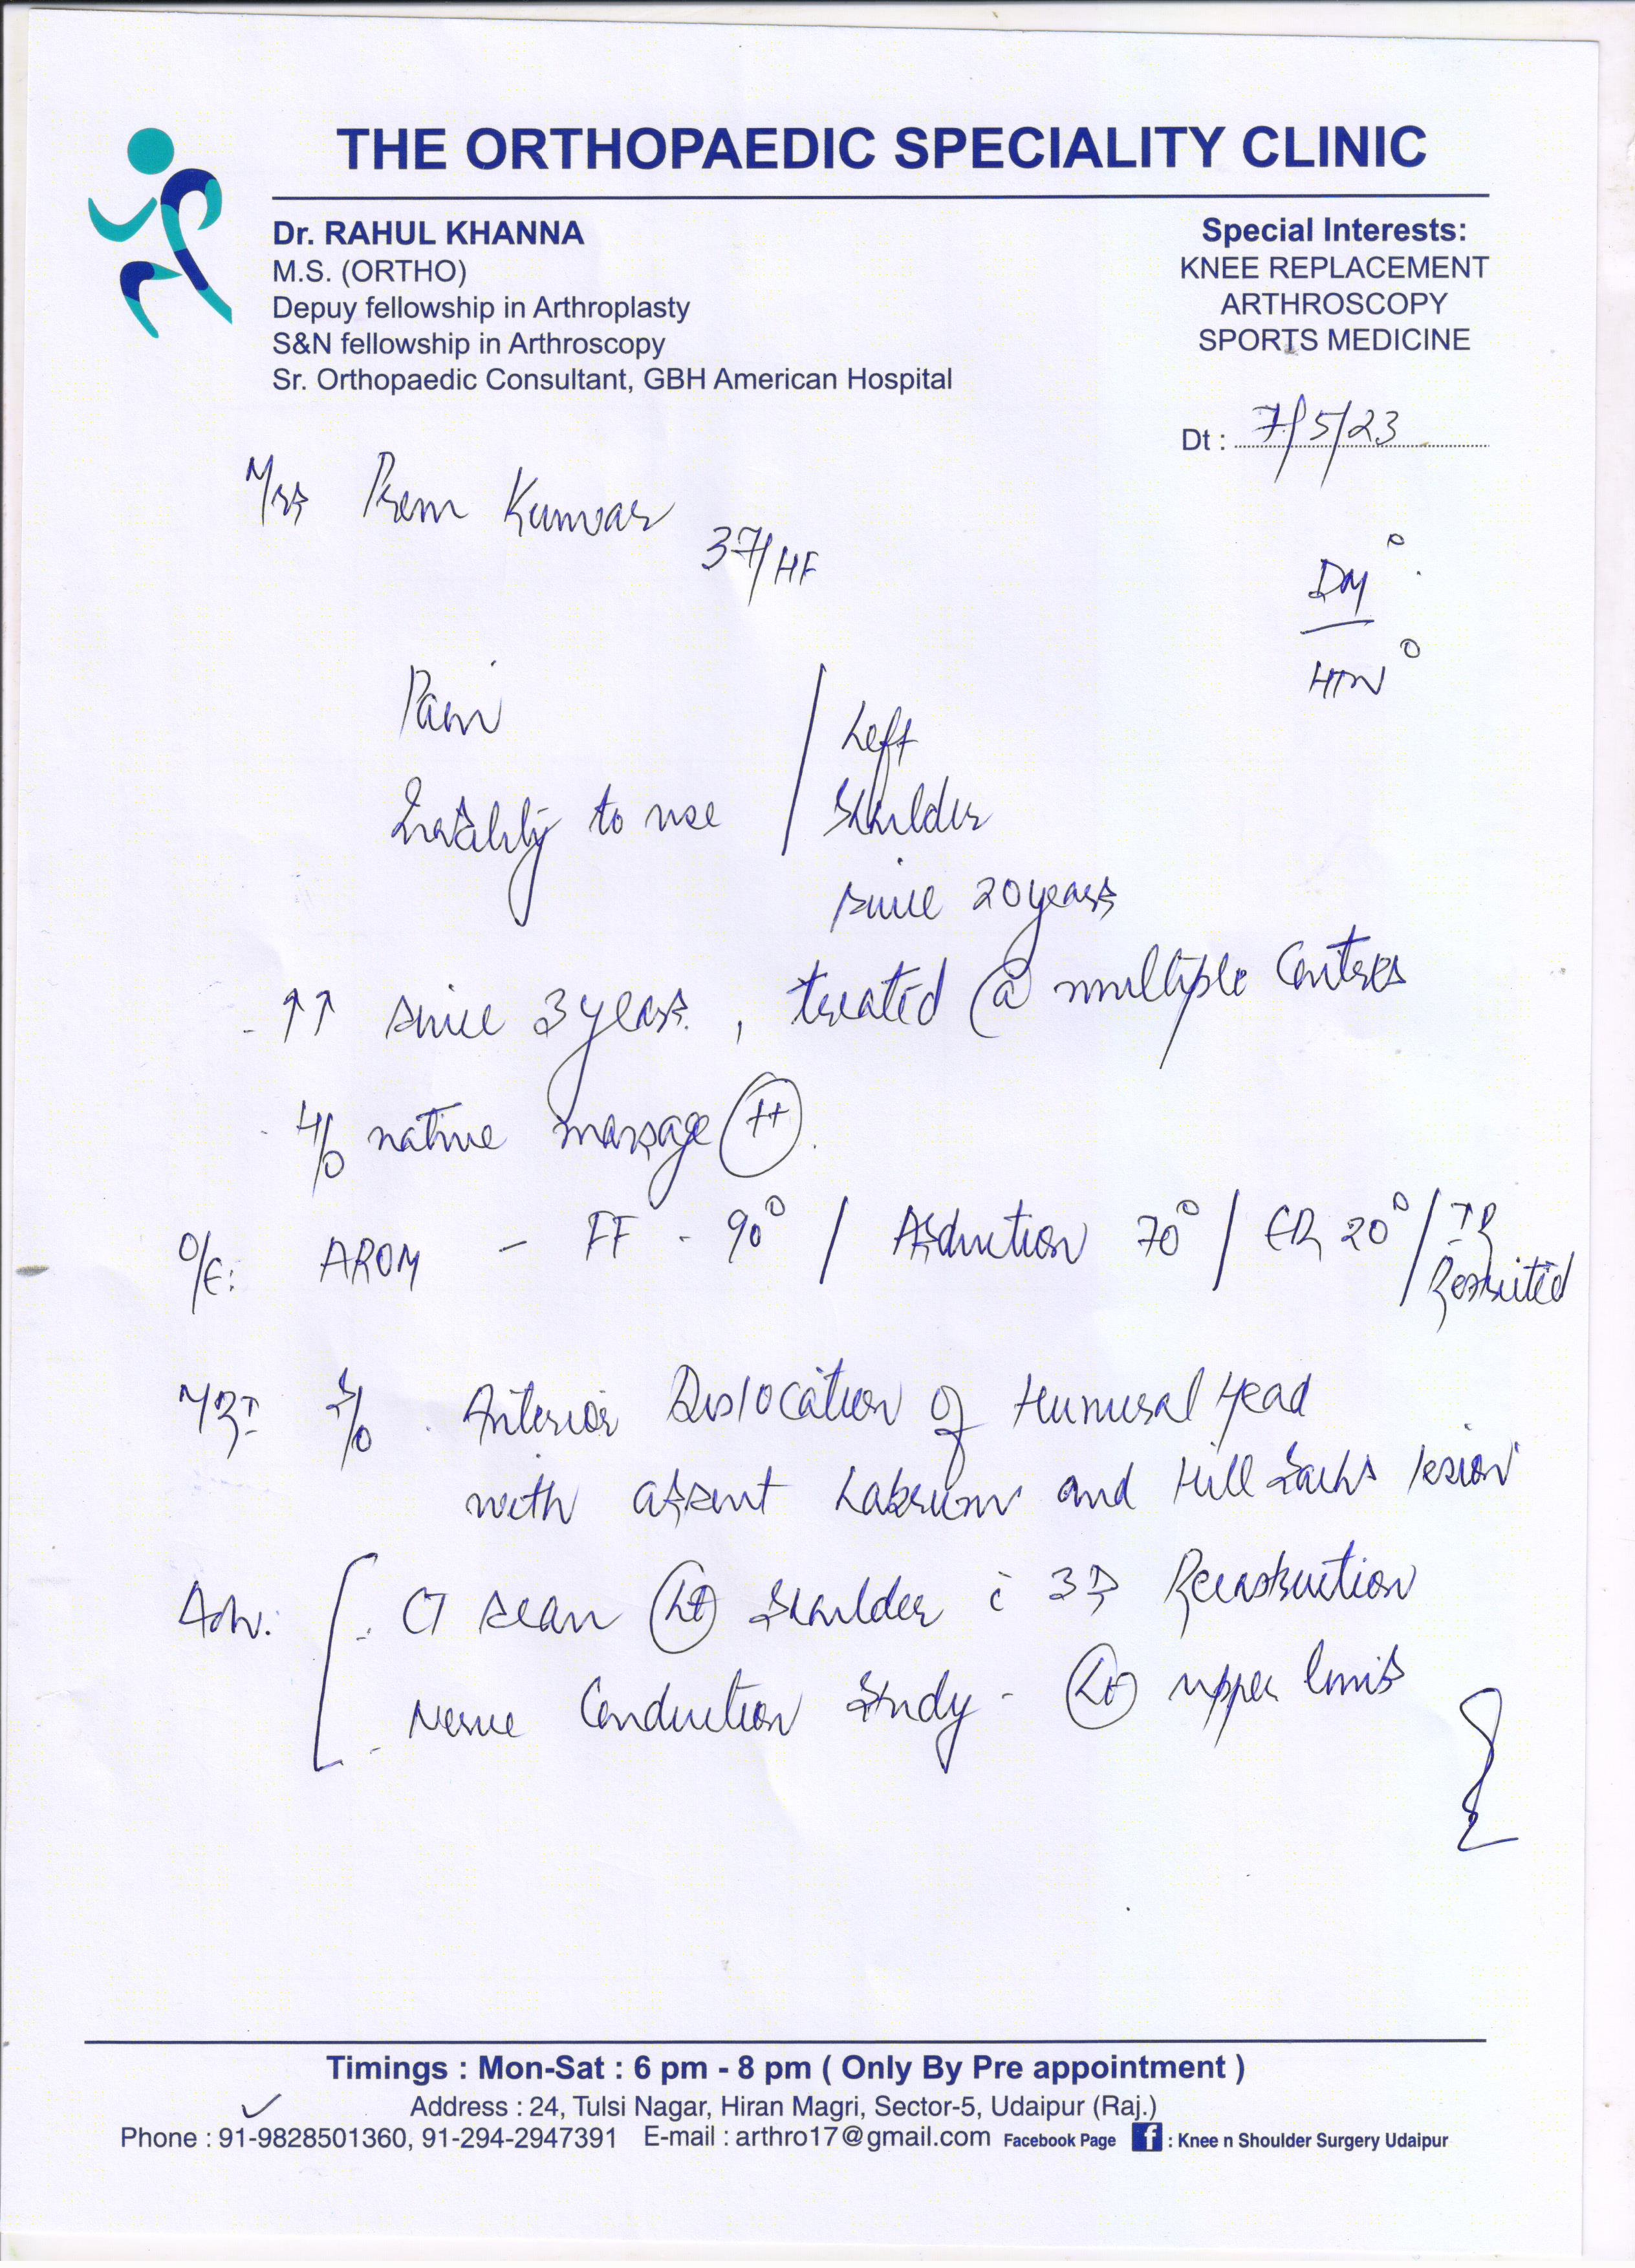 THE ORTHOPAEDIC SPECIALITY CLINIC
Dr. RAHUL KHANNA
M.S. (ORTHO)
Depuy fellowship in Arthroplasty
S&N fellowship in Arthroscopy
Sr. Orthopaedic Consultant, GBH American Hospital
Special Interests:
KNEE REPLACEMENT
ARTHROSCOPY
SPORTS MEDICINE
Dt : 7/5/23
Mrs Prem Kunwar
37/HF
DM °
HTN °
Pain
Inability to use
/ Left
Shoulder
since 20 years
- ↑↑ since 3 years, treated @ multiple Centres
- H/o native massage ++
O/E: AROM - FF - 90° / Abduction 70° / ER 20° / IR
Restricted
MRI S/o Anterior Dislocation of Humeral Head
with absent Labrum and Hill Sachs lesion
Adv: - CT scan Lt Shoulder c̄ 3D Reconstruction
- Nerve Conduction Study - Lt upper limb
Timings : Mon-Sat : 6 pm - 8 pm ( Only By Pre appointment )
Address : 24, Tulsi Nagar, Hiran Magri, Sector-5, Udaipur (Raj.)
Phone : 91-9828501360, 91-294-2947391 E-mail : arthro17@gmail.com Facebook Page f : Knee n Shoulder Surgery Udaipur